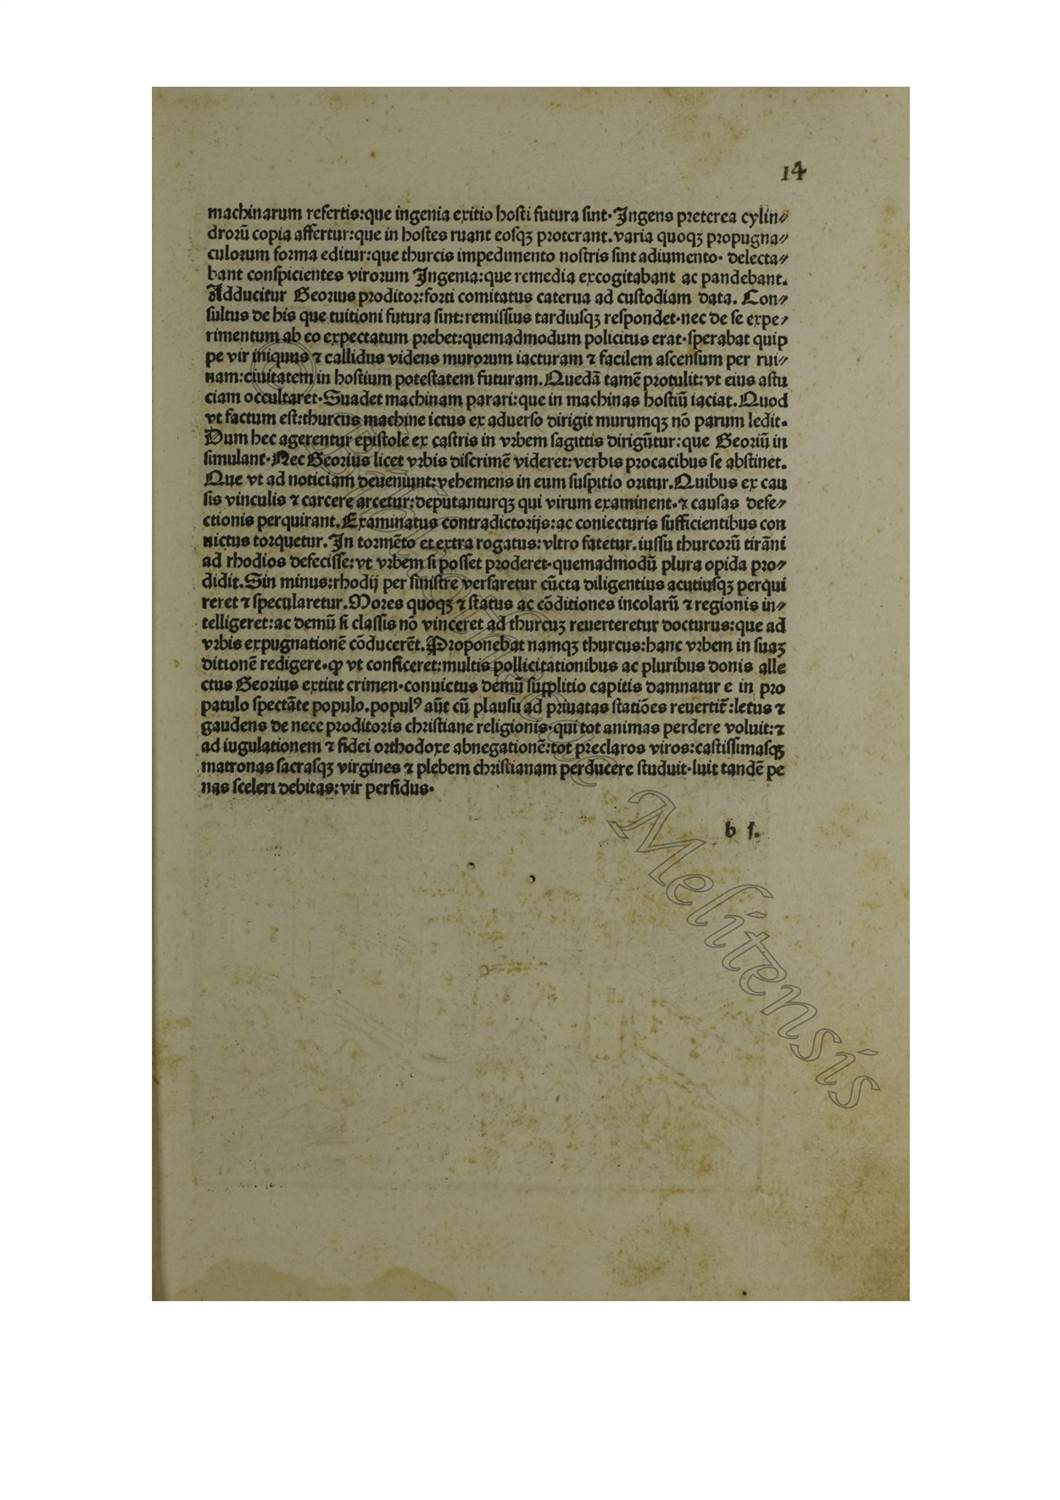 14
machinarum refertis:que ingenia exitio hosti futura sint·Ingens preterea cylin⸗
drorū copia affertur:que in hostes ruant eosqꝫ proterant.varia quoqꝫ propugna⸗
culorum forma editur:que thurcis impedimento nostris sint adiumento· delecta⸗
bant conspicientes virorum Ingenia:que remedia excogitabant ac pandebant.
Adducitur Georius proditor:forti comitatus caterua ad custodiam data. Con⸗
sultus de his que tuitioni futura sint:remissius tardiusqꝫ respondet·nec de se expe⸗
rimentum ab eo expectatum prebet:quemadmodum policitus erat·sperabat quip
pe vir iniquus ⁊ callidus videns murorum iacturam ⁊ facilem ascensum per rui⸗
nam:ciuitatem in hostium potestatem futuram.Quedā tamē protulit:vt eius astu
ciam occultaret·Suadet machinam parari:que in machinas hostiū iaciat.Quod
vt factum est:thurcus machine ictus ex aduerso dirigit murumqꝫ nō parum ledit.
Dum hec agerentur epistole ex castris in vrbem sagittis dirigūtur:que Georiū in
simulant·Nec Georius licet vrbis discrimē videret:verbis procacibus se abstinet.
Que vt ad noticiam deueniunt:vehemens in eum suspitio oritur.Quibus ex cau
sis vinculis ⁊ carcere arcetur:deputanturqꝫ qui virum examinent·⁊ causas defe⸗
ctionis perquirant.Examinatus contradictorijs:ac coniecturis sufficientibus con
uictus torquetur.In tormēto et extra rogatus:vltro fatetur.iussu thurcorū tirāni
ad rhodios defecisse:vt vrbem si posset proderet·quemadmodū plura opida pro⸗
didit.Sin minus:rhodij per sinistre versaretur cūcta diligentius acutiusqꝫ perqui
reret ⁊ specularetur.Mores quoqꝫ ⁊ status ac cōditiones incolarū ⁊ regionis in⸗
telligeret:ac demū si classis nō vinceret ad thurcuꝫ reuerteretur docturus:que ad
vrbis expugnationē cōducerēt.Proponebat namqꝫ thurcus:hanc vrbem in suaꝫ
ditionē redigere·ꝙ vt conficeret:multis pollicitationibus ac pluribus donis alle
ctus Georius extitit crimen·conuictus demū supplitio capitis damnatur e in pro
patulo spectāte populo.popul⁹ aūt cū plausu ad priuatas statiōes reuertit̄:letus ⁊
gaudens de nece proditoris christiane religionis·qui tot animas perdere voluit:⁊
ad iugulationem ⁊ fidei orthodoxe abnegationē:tot preclaros viros:castissimasqꝫ
matronas sacrasqꝫ virgines ⁊ plebem christianam perducere studuit·luit tandē pe
nas sceleri debitas:vir perfidus·
b s.
Melitensis